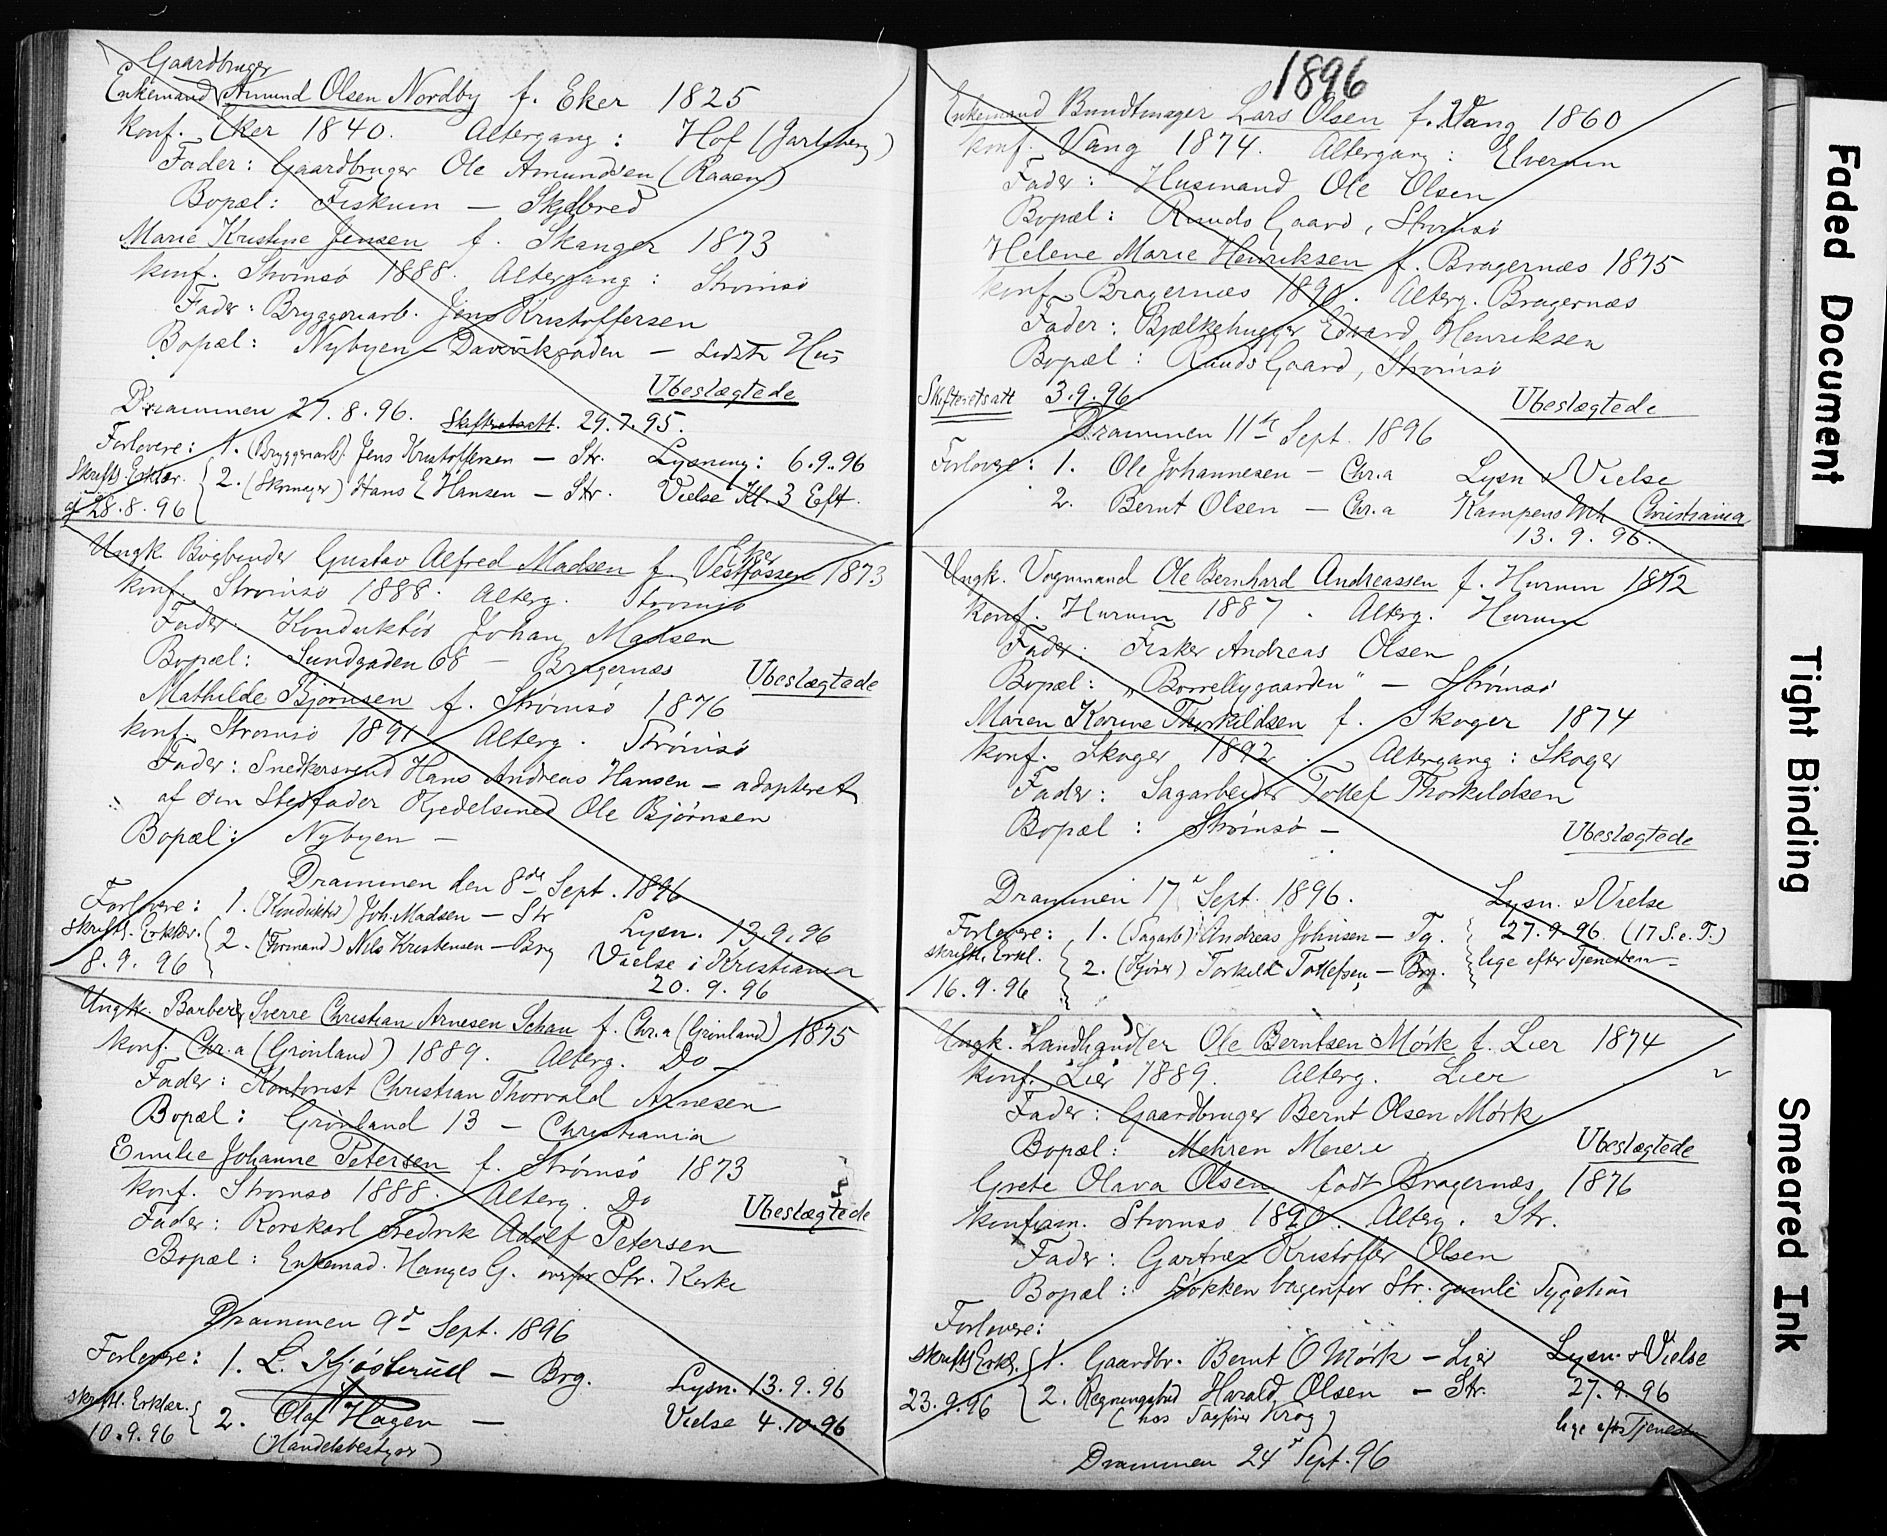 Gaardbruger
Enkemand Amund Olsen Nordby f. Eker 1825
konf. Eker 1840. Altergang: Hof (Jarlsberg)
Fader: Gaardbruger Ole Amundsen (Raaen)
Bopæl: Fiskum — Skjelbred
Marie Kristine Jensen f. Skanger 1873
konf. Strømsø 1888. Altergang: Strømsø
Fader: Bryggeriarb. Jens Kristoffersen
Bopæl: Nybyen – Davikgaden — sidste Hus
Ubeslægtede
Drammen 27.8.96. Skifteretsatt. 29.7.95.
Forlovere: 1. (Bryggeriarb). Jens Kristoffersen — Str. Lysning: 6.9.96
skriftl. Erklær. 2. (Skomager) Hans E Hansen — Str. Vielse Kl. 3 Eft.
af 28.8.96
Eker
Ungk. Bogbinder Gustav Alfred Madsen f. Vestfossen 1873
konf. Strømsø 1888. Alterg. Strømsø
Fader: Konduktør Johan Madsen
Bopæl: Sundgaden 68 — Bragernæs Ubeslægtede
Mathilde Bjørnsen f. Strømsø 1876
konf. Strømsø 1891 Alterg. Strømsø
Fader: Snedkersvend Hans Andreas Hansen — adopteret
af sin Stedfader Kjedelsmed Ole Bjørnsen
Bopæl: Nybyen —
Drammen den 8de Sept. 1896
Forlovere: 1. (Konduktør) Joh. Madsen — Str Lysn. 13.9.96
skriftl. Erklær. 2. (Formand) Nils Kristensen — Brg Vielse i Kristiania
8.9.96 20.9.96
Ungk. Barber Sverre Christian Arnesen Schau f. Chr.a (Grønland) 1875
konf. Chr.a (Grønland) 1889. Alterg. Do —
Fader: Kontorist Christian Thorvald Arnesen
Bopæl: Grønland 13 — Christiania
Emilie Johanne Petersen f. Strømsø 1873
konf. Strømsø 1888. Alterg. Do
Ubeslægtede
Fader: Rorskarl Fredrik Adolf Petersen
Bopæl: Enkemad. Hanges G. ovenfor Str. Kirke
Drammen 9d Sept. 1896
Forlovere: 1. L. Kjøsterud — Brg. Lysn. 13.9.96
skriftl. Erklær. 2. Olaf Hagen — Vielse 4.10.96
10.9.96 (Handelsbestyrer)
1896
Enkemand Bundtmager Lars Olsen f. Vang 1860
konf. Vang 1874. Altergang: Elverum
Fader: Husmand Ole Olsen
Bopæl: Ruuds Gaard, Strømsø
Helene Marie Henriksen f. Bragernæs 1875
konf. Bragernæs 1890. Alterg. Bragernæs
Fader: Bjælkehugger Edvard Henriksen
Bopæl: Ruuds Gaard, Strømsø
Skifteretsatt 3.9.96. Ubeslægtede
Drammen 11te Sept. 1896
Forlovere: 1. Ole Johannesen — Chr.a Lysn & Vielse
2. Bernt Olsen — Chr.a Kampens Mh Christiania
13.9.96.
Ungk. Vognmand Ole Bernhard Andreassen f. Hurum 1872
konf. Hurum 1887. Alterg. Hurum
Fader: Fisker Andreas Olsen
Bopæl: "Borrebygaarden" — Strømsø
Maren Karine Thorkildsen f. Skoger 1874
konf. Skoger 1892. Altergang: Skoger
Fader: Sagarbeider Tollef Thorkildsen
Bopæl: Strømsø — Ubeslægtede
Drammen 17d Sept. 1896. Lysn. & Vielse
Forlovere: 1. (Sagarb) Andreas Johnsen — Tg. 27.9.96 (17 S. e. T.)
skriftl. Erkl. 2. (Kjører) Torkild Tollefsen — Brg. lige efter Tjenesten —
16.9.96
Ungk. Landhandler Ole Berntsen Mørk f. Lier 1874
konf. Lier 1889. Alterg. Lier
Fader: Gaardbruger Bernt Olsen Mørk
Bopæl: Mehren Meieri Ubeslægtede
Grete Olava Olsen født Bragernæs 1876
konf. Strømsø 1890. Alterg. Str.
Fader: Gartner Kristoffer Olsen
Bopæl: Løkken bagenfor Str. gamle Sygehus
Forlovere:
skriftl. Erkl. 1. Gaardbr. Bernt O Mørk — Lier Lysn. & Vielse
23.9.96 2. Regningsbud Harald Olsen — Str. 27.9.96
(hos Sagfører Krog) lige efter Tjenesten
Drammen 24d Sept. 96
Faded Document
Tight Binding
Smeared Ink